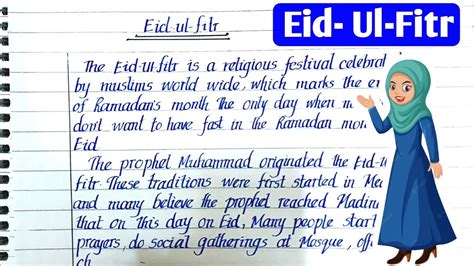 Eid-ul-fitr
Eid- Ul-Fitr
The Eid-Ul-fitr is a religious festival celebrat
by muslims world wide, which marks the en
of Ramadan's month the only day when m
don't want to have fast in the Ramadan mon
Eid.
The prophet Muhammad originated the Eid-U
fitr. These traditions were first started in Me
and many believe the prophet reached Madina
that on this day on Eid, Many people start
prayers, do social gatherings at Mosque, off